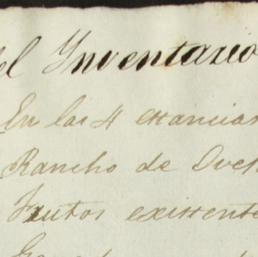 el Inventario
En las 4 estancias
Rancho de Ovej
Frutos existente